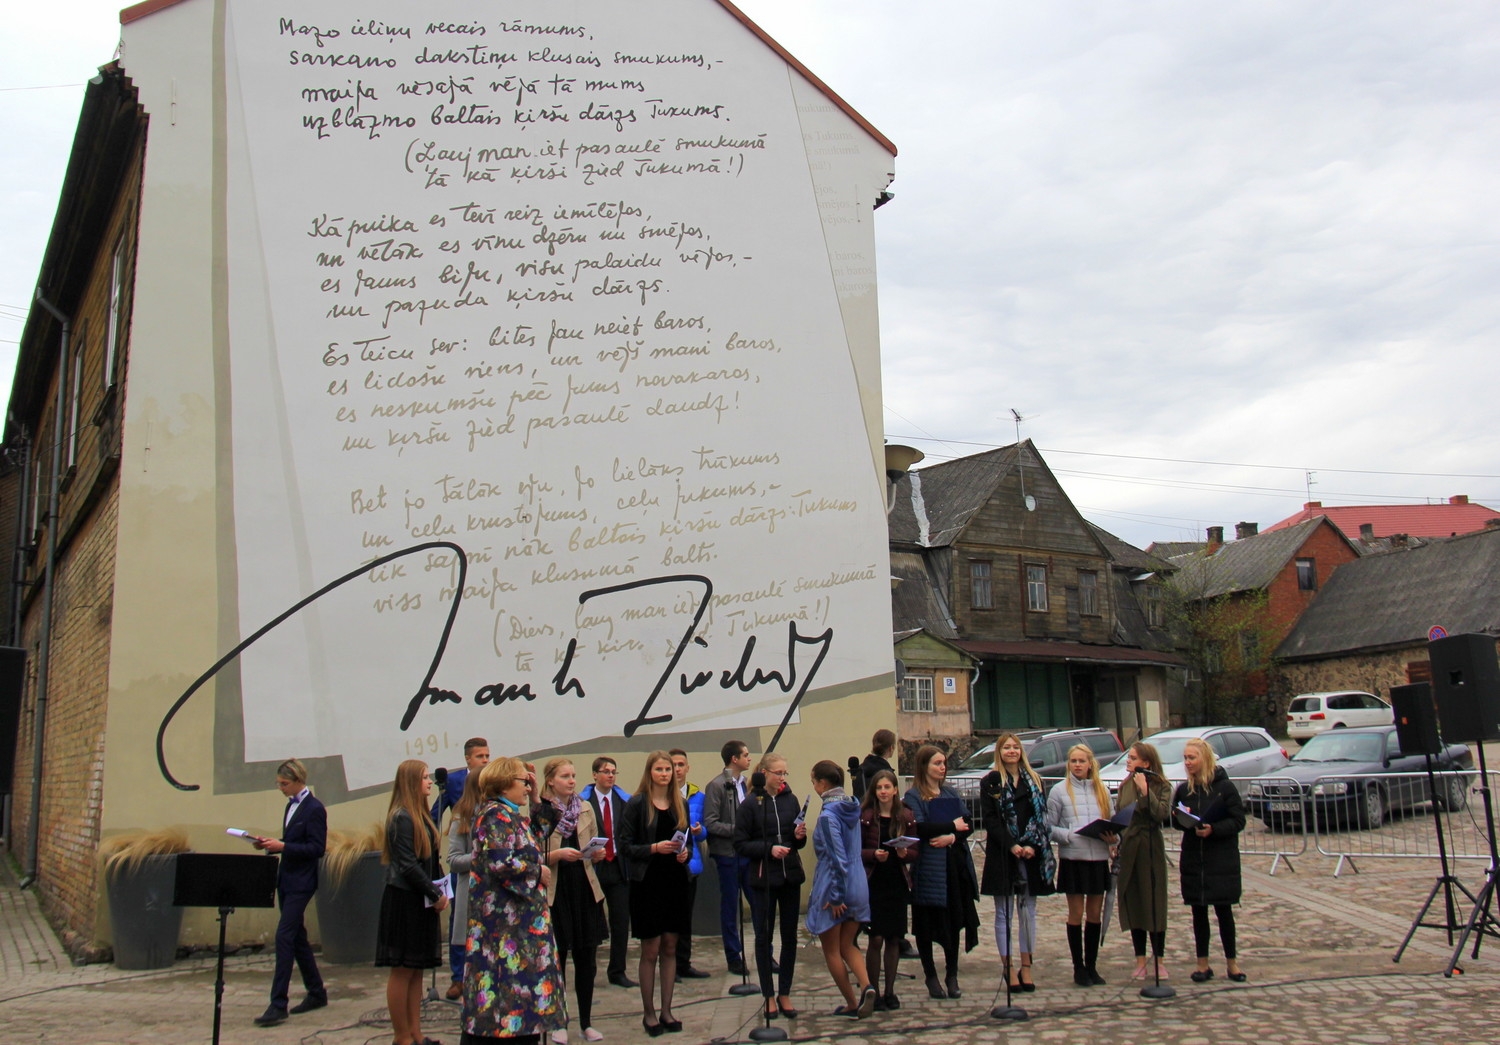 Mazo ieliņu vecais rāmums,
sarkano dakstiņu klusais smukums,-
maija vēsajā vējā tā mums
uzblāzmo baltais ķiršu dārzs Tukums.
(Ļauj man iet pasaulē smukumā
tā kā ķirši zied Tukumā!)
Kā puika es tevī reiz iemīlējos,
un vēlāk es vīnu dzēru un smējos,
es jauns biju, visu palaidu vējos,-
un pazuda ķiršu dārzs.
Es teicu sev: bites jau neiet baros,
es lidošu viens, un vējš mani baros,
es neskumšu pēc jums novakaros,
un ķiršu zied pasaulē daudz!
Bet jo tālāk eju, jo lielāks trūkums
un ceļu krustojums, ceļu jukums,-
tik sapnī nāk baltais ķiršu dārzs: Tukums
viss maija klusumā balts.
(Dievs, ļauj man iet pasaulē smukumā
tā kā ķir. zied Tukumā!)
Imants Ziedonis
1991.